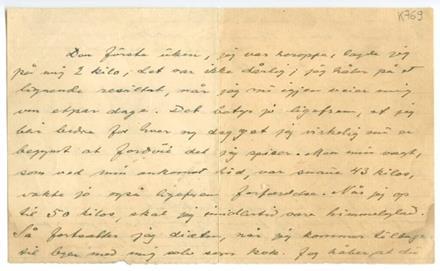 K769
Den første uken, jeg var heroppe, lagde jeg
på mig 2 kilo; det var ikke dårlig; jeg håber på et
lignende resultat, når jeg nu igjen veier mig
om etpar dage. Det betyr jo ligefrem, at jeg
blir bedre for hver dag, at jeg virkelig nu er
begynt at fordøie det jeg spiser. Men min vægt,
som ved min ankomst hid, var snaue 43 kilos,
vakte jo også ligefrem forfærdelse. Når jeg op
til 50 kilos, skal jeg imidlertid være himmelglad.
Så fortsætter jeg diæten, når jeg kommer tilbage
til byen med mig selv som kok. Jeg håber at du